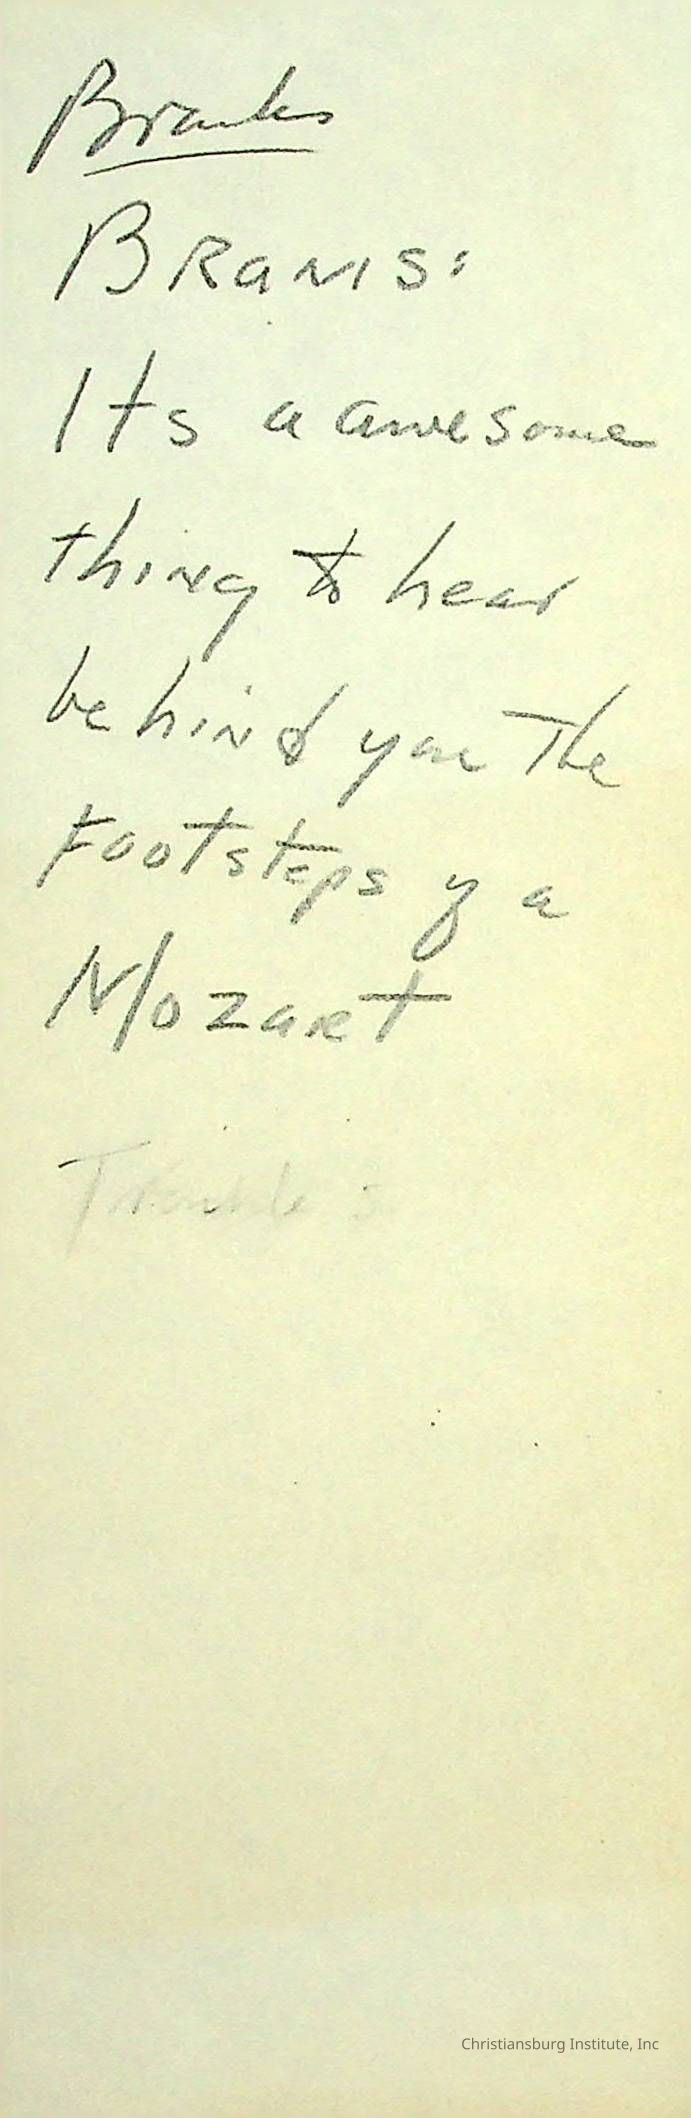 Brahms
BRAMS:
Its a awesome
thing to hear
behind you The
Footsteps of a
Mozart
Christiansburg Institute, Inc